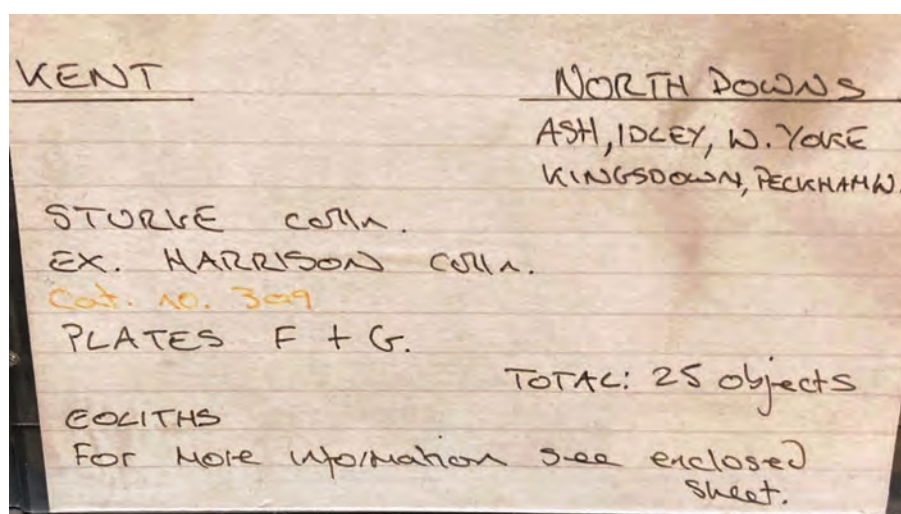 KENT NORTH DOWNS
ASH, IDLEY, W. YOKE
KINGSDOWN, PECKHAM W.
STURGE colln.
EX. HARRISON colln.
Cat. no. 309
PLATES F + G.
TOTAL: 25 objects
EOLITHS
For More information see enclosed
sheet.